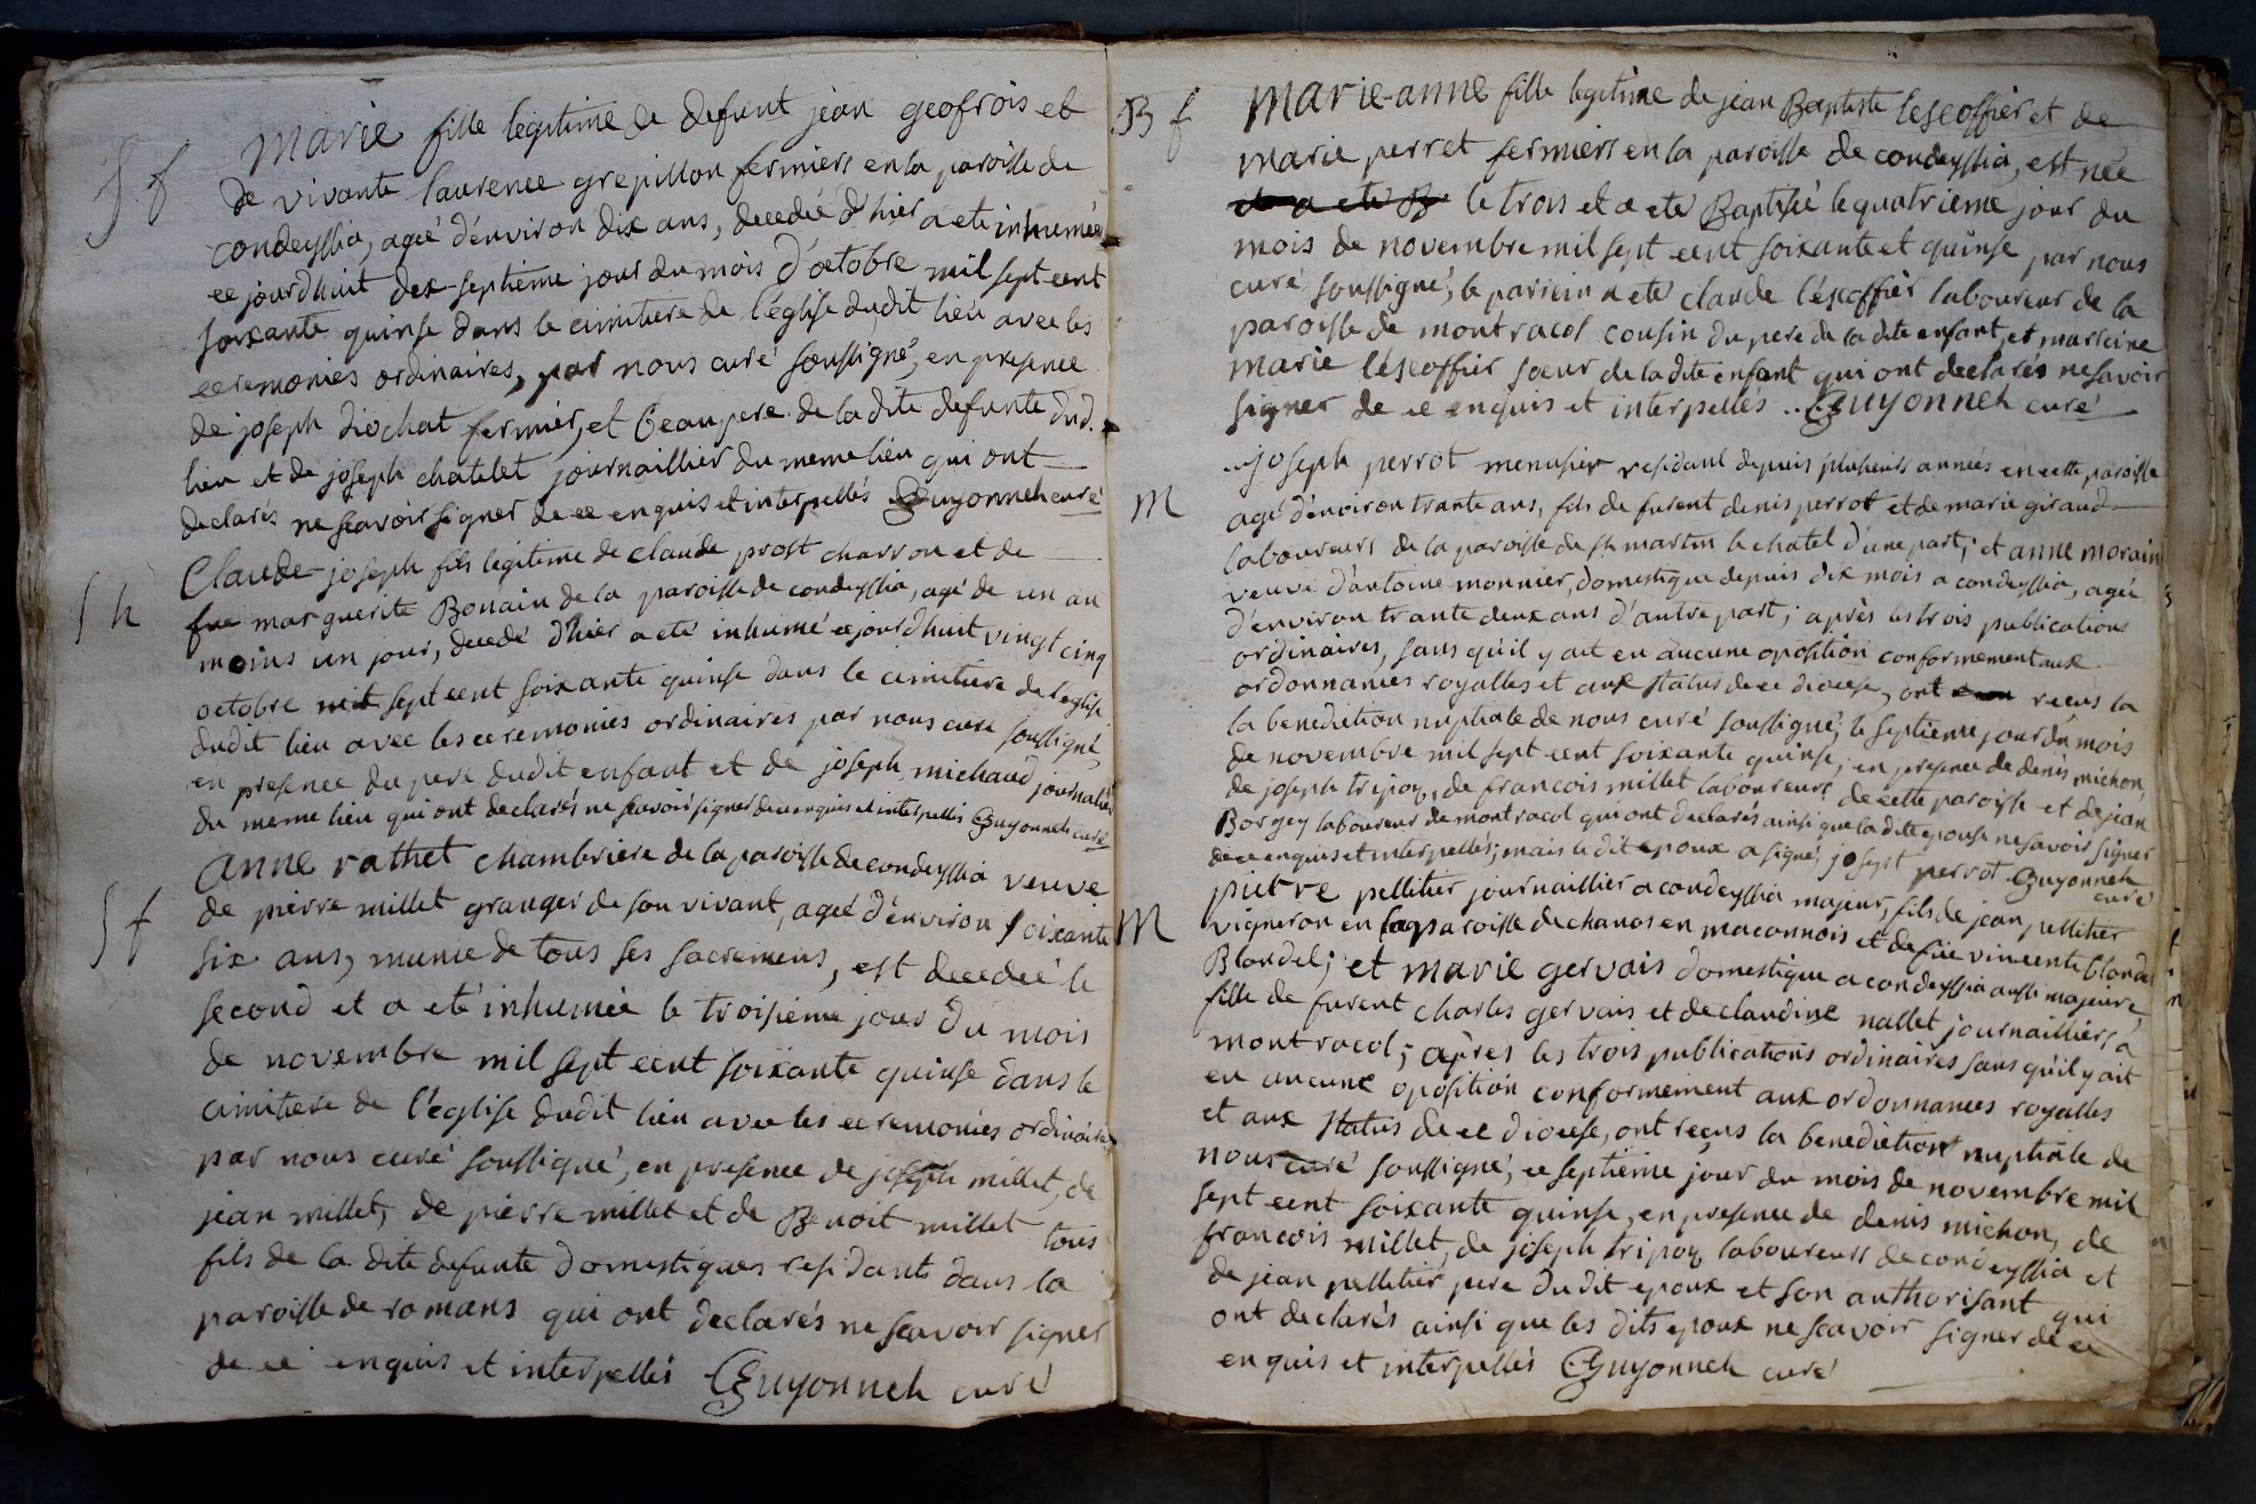 S f
Marie fille legitime de defunt jean geofrois et
de vivante laurence grepillon fermiers en la paroisse de
condeyssia, ageé d'environ dix ans, decedeé d'hier a eté inhumeé
ce jourdhuit dex-septieme jour du mois d'octobre mil sept cent
soixante quinse dans le cimitiere de l'église dudit lieu avec les
ceremonies ordinaires, par nous curé soussigné, en presence
de joseph diochat fermier, et beaupere de la dite defunte dud.
lieu et de joseph chatelet journaillier du meme lieu qui ont
declarés ne scavoir signer de ce enquis et interpellés Guyonneh curé
S h
Claude-joseph fils legitime de claude prost charron et de
fue marguerite Bonain de la paroisse de condeyssia, agé de un an
moins un jour, decedé d'hier a eté inhumé ce jourd'huit vingt cinq
octobre mil sept cent soixante quinse dans le cimitiere de l'eglise
dudit lieu avec les ceremonies ordinaires par nous curé soussigné,
en presence du pere dudit enfant et de joseph michaud journalier
du meme lieu qui ont declarés ne scavoir signer de ce enquis et interpellés Guyonneh curé
S f
Anne rathet chambriere de la paroisse de condeyssia veuve
de pierre millet granger de son vivant, ageé d'environ soixante
six ans, munie de tous ses sacremens, est decedeé le
second et a eté inhumeé le troisiéme jour du mois
de novembre mil sept cent soixante quinse dans le
cimitiere de l'église dudit lieu avec les ceremonies ordinaires
par nous curé soussigné, en presence de joseph millet, de
jean millet, de pierre millet et de Benoit millet tous
fils de la dite defunte domestiques residants dans la
paroisse de romans qui ont declarés ne scavoir signer
de ce enquis et interpellés Guyonneh curé
B f
Marie-anne fille legitime de jean Baptiste lescoffier et de
marie perret fermiers en la paroisse de condeyssia, est neé
et a eté B le trois et a eté Baptiseé le quatrieme jour du
mois de novembre mil sept cent soixante et quinse par nous
curé soussigné, le parrein a eté claude l'éscoffier laboureur de la
paroisse de montracol cousin du pere de la dite enfant, et marreine
marie l'éscoffier soeur de la dite enfant qui ont declarés ne savoir
signer de ce enquis et interpellés .. Guyonneh curé
M
joseph perrot menusier residant depuis plusieurs anneés en cette paroisse
agé d'énviron trante ans, fils de furent denis perrot et de marie giraud
laboureurs de la paroisse de st martin le chatel d'une part; et anne morain
veuve d'antoine monnier, domestique depuis dix mois a condeyssia, ageé
d'énviron trante deux ans d'autre part; après les trois publications
ordinaires, sans qu'il y ait eu aucune oposition conformement aux
ordonnances royalles et aux status de ce diocese, ont recus la
la benediction nuptiale de nous curé soussigné, le septieme jour du mois
de novembre mil sept cent soixante quinse, en presence de denis michon,
de joseph tripoz, de francois millet laboureurs de cette paroisse et de jean
Borgey laboureur de montracol qui ont declarés ainsi que la dite epouse ne savoir signer
de ce enquis et interpellés; mais le dit epoux a signé, josept perrot Guyonneh
curé
M
pierre pellitier journaillier a condeyssia majeur, fils de jean pellitier
vigneron en la paroisse de chanos en maconnois et de füe vincente blondel
Blondel; et marie gervais domestique a condeyssia aussi majeure,
fille de furent charles gervais et de claudine nallet journailliers a
montracol; après les trois publications ordinaires sans qu'il y ait
eu aucune oposition conformement aux ordonnances royalles
et aux status de ce diocese, ont reçus la benediction nuptiale de
nous curé soussigné, ce septieme jour du mois de novembre mil
sept cent soixante quinse, en presence de denis michon, de
francois millet, de joseph tripoz laboureurs de condeyssia et
de jean pellitier pere dudit epoux et son authorisant qui
ont declarés ainsi que les dits epoux ne scavoir signer de ce
enquis et interpellés Guyonneh curé